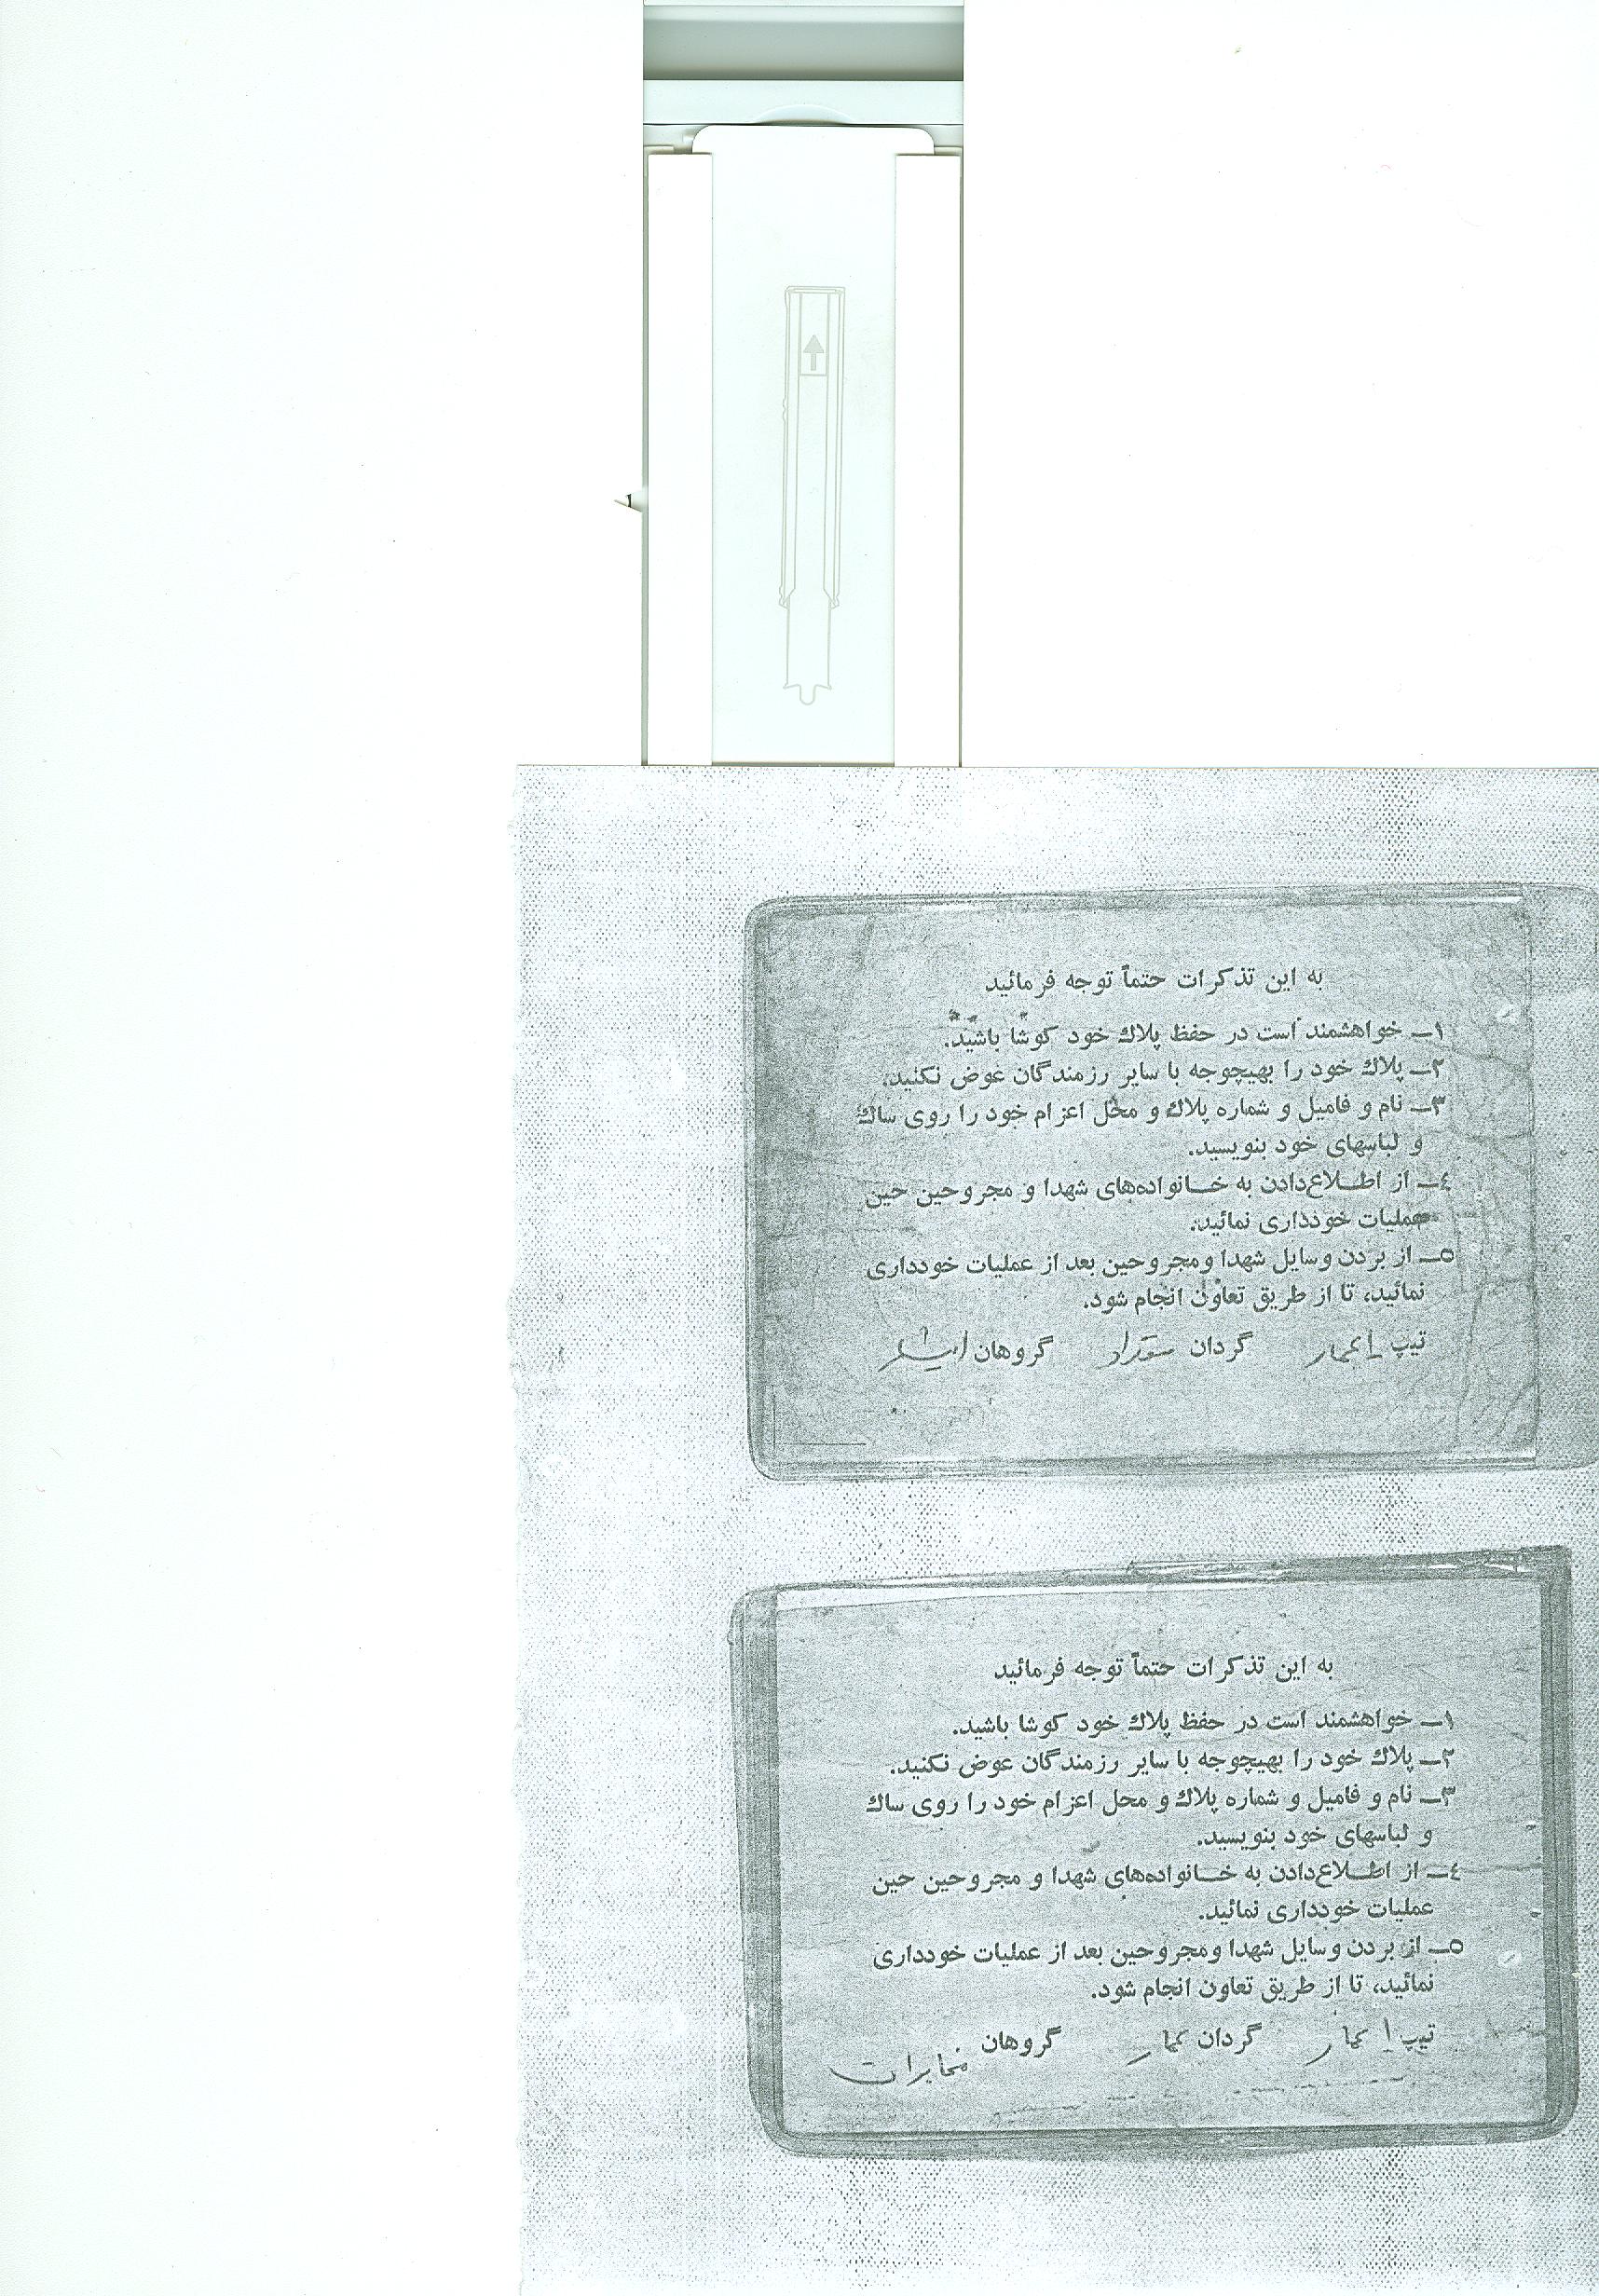 به این تذکرات حتماً توجه فرمائید
۱ــ خواهشمند است در حفظ پلاك خود كوشا باشید.
۲ــ پلاك خود را بهیچوجه با سایر رزمندگان عوض نکنید.
۳ــ نام و فامیل و شماره پلاك و محل اعزام خود را روی ساك
و لباسهای خود بنویسید.
٤ــ از اطــلاع‌دادن به خــانواده‌های شهدا و مجروحین حین
عملیات خودداری نمائید.
۵ــ از بردن وسایل شهدا ومجروحین بعد از عملیات خودداری
نمائید، تا از طریق تعاون انجام شود.
تیپ گردان گروهان
به این تذکرات حتماً توجه فرمائید
۱ــ خواهشمند است در حفظ پلاك خود كوشا باشید.
۲ــ پلاك خود را بهیچوجه با سایر رزمندگان عوض نکنید.
۳ــ نام و فامیل و شماره پلاك و محل اعزام خود را روی ساك
و لباسهای خود بنویسید.
٤ــ از اطــلاع‌دادن به خــانواده‌های شهدا و مجروحین حین
عملیات خودداری نمائید.
۵ــ از بردن وسایل شهدا ومجروحین بعد از عملیات خودداری
نمائید، تا از طریق تعاون انجام شود.
تیپ ۱ عمار گردان عمار گروهان مخابرات